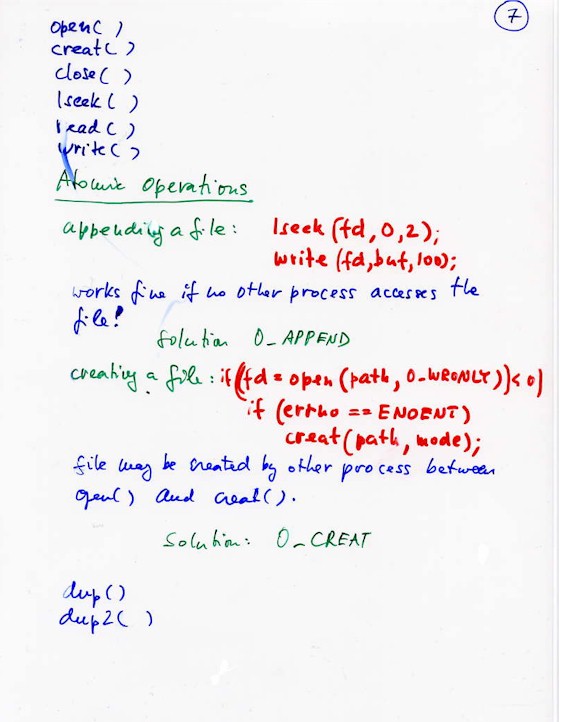 7
open( )
creat( )
close( )
lseek( )
read( )
write( )
Atomic Operations
appending a file: lseek (fd, 0, 2);
write (fd, buf, 100);
works fine if no other process accesses the
file!
Solution O_APPEND
creating a file: if((fd = open (path, O_WRONLY))< 0)
if (errno == ENOENT)
creat(path, mode);
file may be created by other process between
open() and creat().
Solution: O_CREAT
dup()
dup2( )